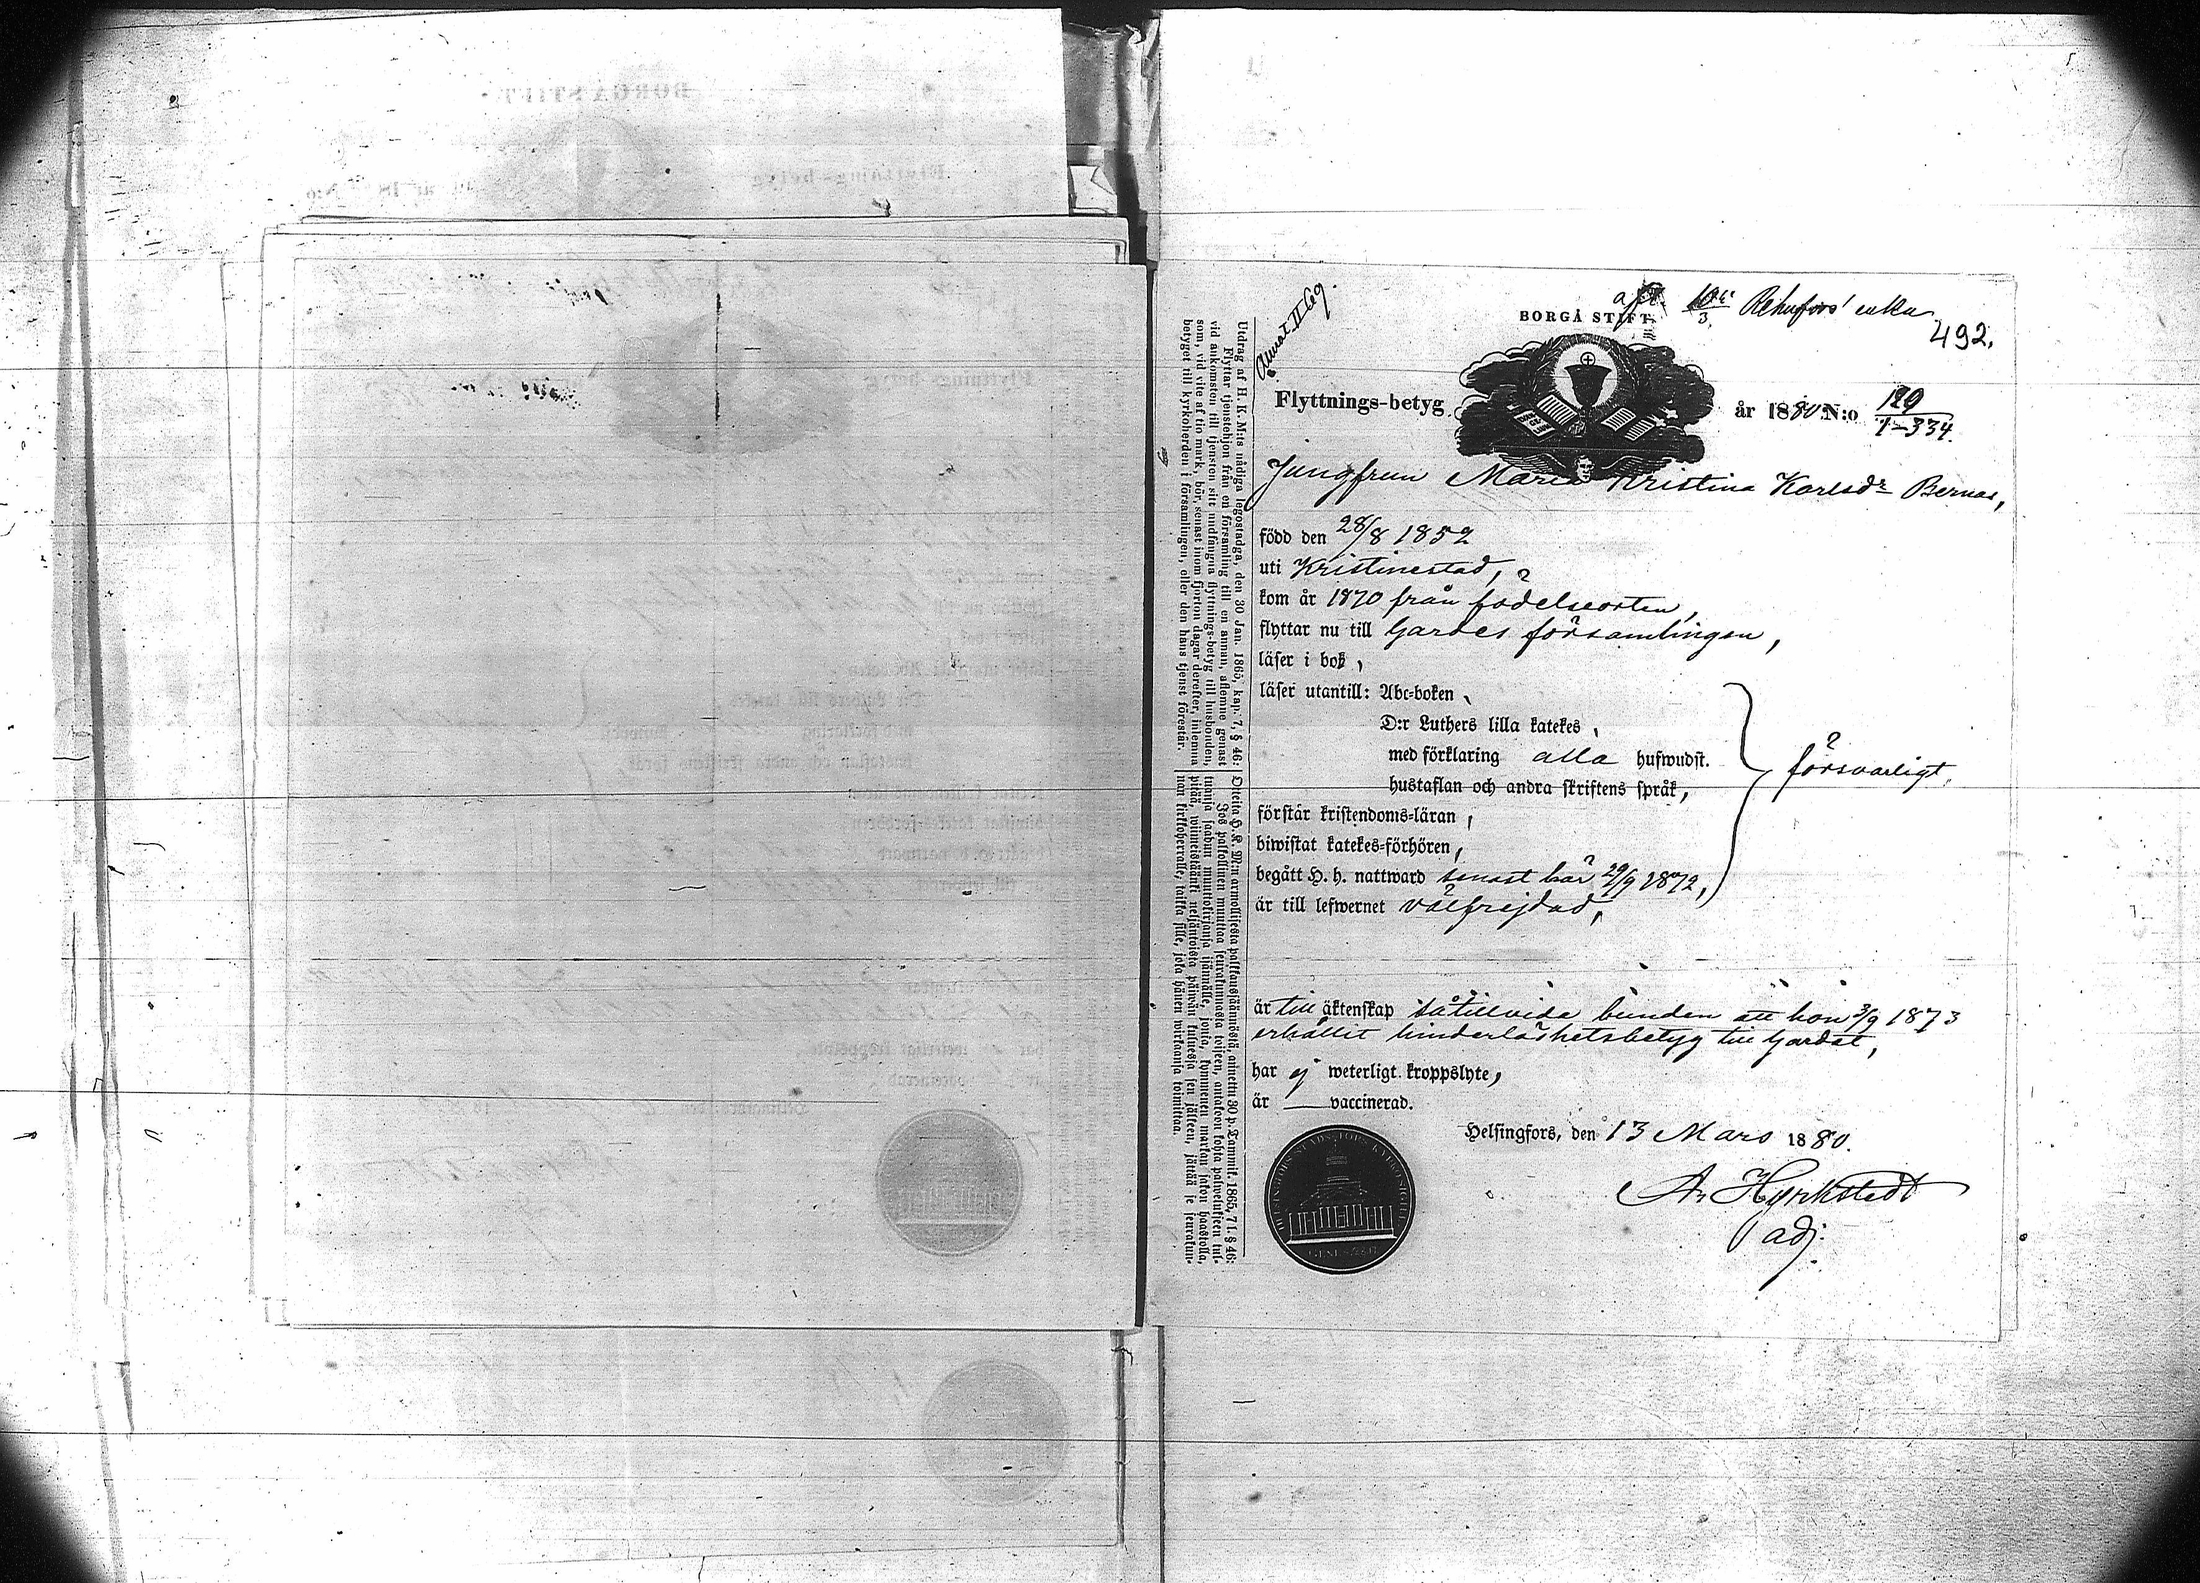 Annat II Cg.
BORGÅ STIFT.
enka
492.
Flyttnings-betyg år 1880 N:o 120
1-334.
Jungfrun Maria Kristina Karlsdr Bernas,
född den 28/8 1852
uti Kristinestad,
kom år 1870 från födelseorten,
flyttar nu till Gardesförsamlingen,
läser i bok,
läser utantill: Abc-boken,
D:r Luthers lilla katekes,
med förklaring alla hufwudst.
hustaflan och andra skriftens språk,
försvarligt,
förstår kristendoms-läran,
biwistat katekes-förhören,
begått H. h. nattward senast här 29/9 1872,
är till lefwernet välfrejdad,
är till äktenskap såtillvida bunden att hon 3/9 1873
erhållit hinderlöshetsbetyg till Gardet,
har ej weterligt kroppslyte,
är — vaccinerad.
Helsingfors, den 13 Mars 1880.
A. Hyrkstedt
adj.
HELSINGFORS STADS FÖRS. KYRKOSIGILL
Utdrag af H. K. M:ts nådiga legostadga, den 30 Jan. 1865, kap. 7, § 46:
Flyttar tjenstehjon från en församling till en annan, aflemne genast
vid ankomsten till tjensten sitt undfångna flyttnings-betyg till husbonden,
som, vid vite af tio mark, bör senast inom fjorton dagar derefter, inlemna
betyget till kyrkoherden i församlingen, eller den hans tjenst förestår.
Otteita H. K. M:n armollisesta palkkaussäännöstä, annettu 30 p. Tammik. 1865, 7 l. § 46:
Jos palkollinen muuttaa seurakunnasta toiseen, antakoon kohta palwelukseen tul-
tuansa saadun muuttokirjansa isännälle, jonka, kymmenen markan sakon haastolla,
pitää, wiimeistäänki neljäntoista päiwän kuluessa sen jälkeen, jättää se seurakun-
nan kirkkoherralle, taikka sille, joka hänen wirkaansa toimittaa.
BORGÅ STIFT.
Flyttnings-betyg
år 18
N:o
Flyttnings-betyg